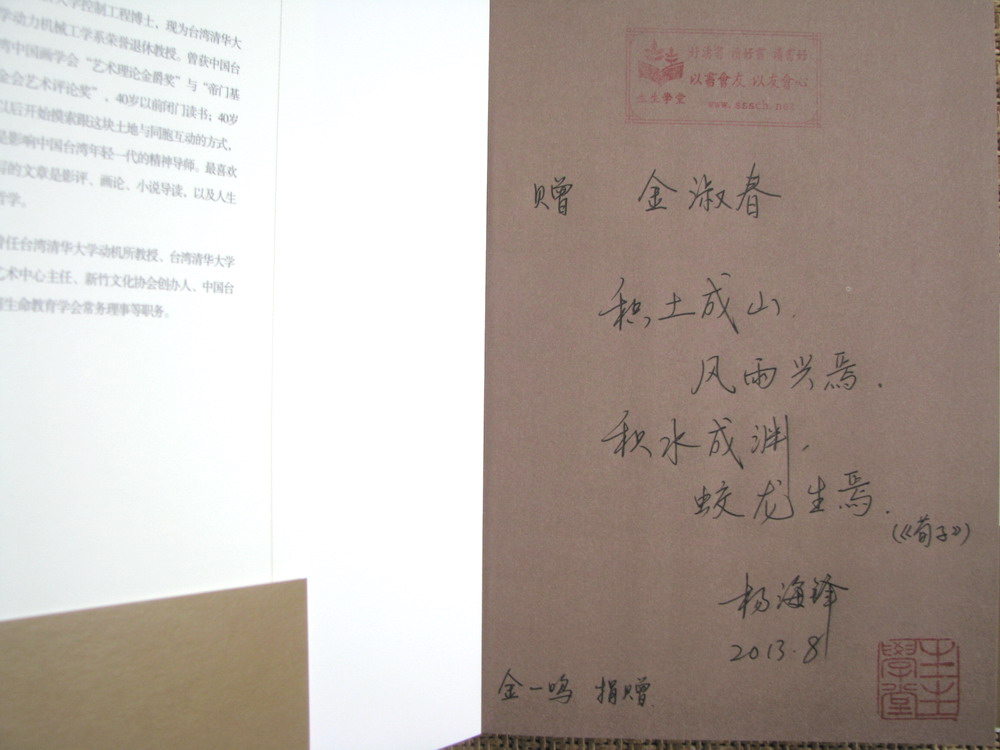 学控制工程博士,现为台湾清华大
学动力机械工学系荣誉退休教授。曾获中国台
湾中国画学会“艺术理论金爵奖”与“帝门基
金会艺术评论奖”,40岁以前闭门读书;40岁
以后开始摸索跟这块土地与同胞互动的方式,
是影响中国台湾年轻一代的精神导师。最喜欢
写的文章是影评、画论、小说导读,以及人生
哲学。
曾任台湾清华大学动机所教授、台湾清华大学
艺术中心主任、新竹文化协会创办人、中国台
生命教育学会常务理事等职务。
好读书 读好书 读书好
以書會友 以友會心
生生学堂
www.sssch.net
赠 金淑春
积土成山
风雨兴焉.
积水成渊,
蛟龙生焉.
(《荀子》)
杨海锋
2013.8
金一鸣 捐赠
生生學堂